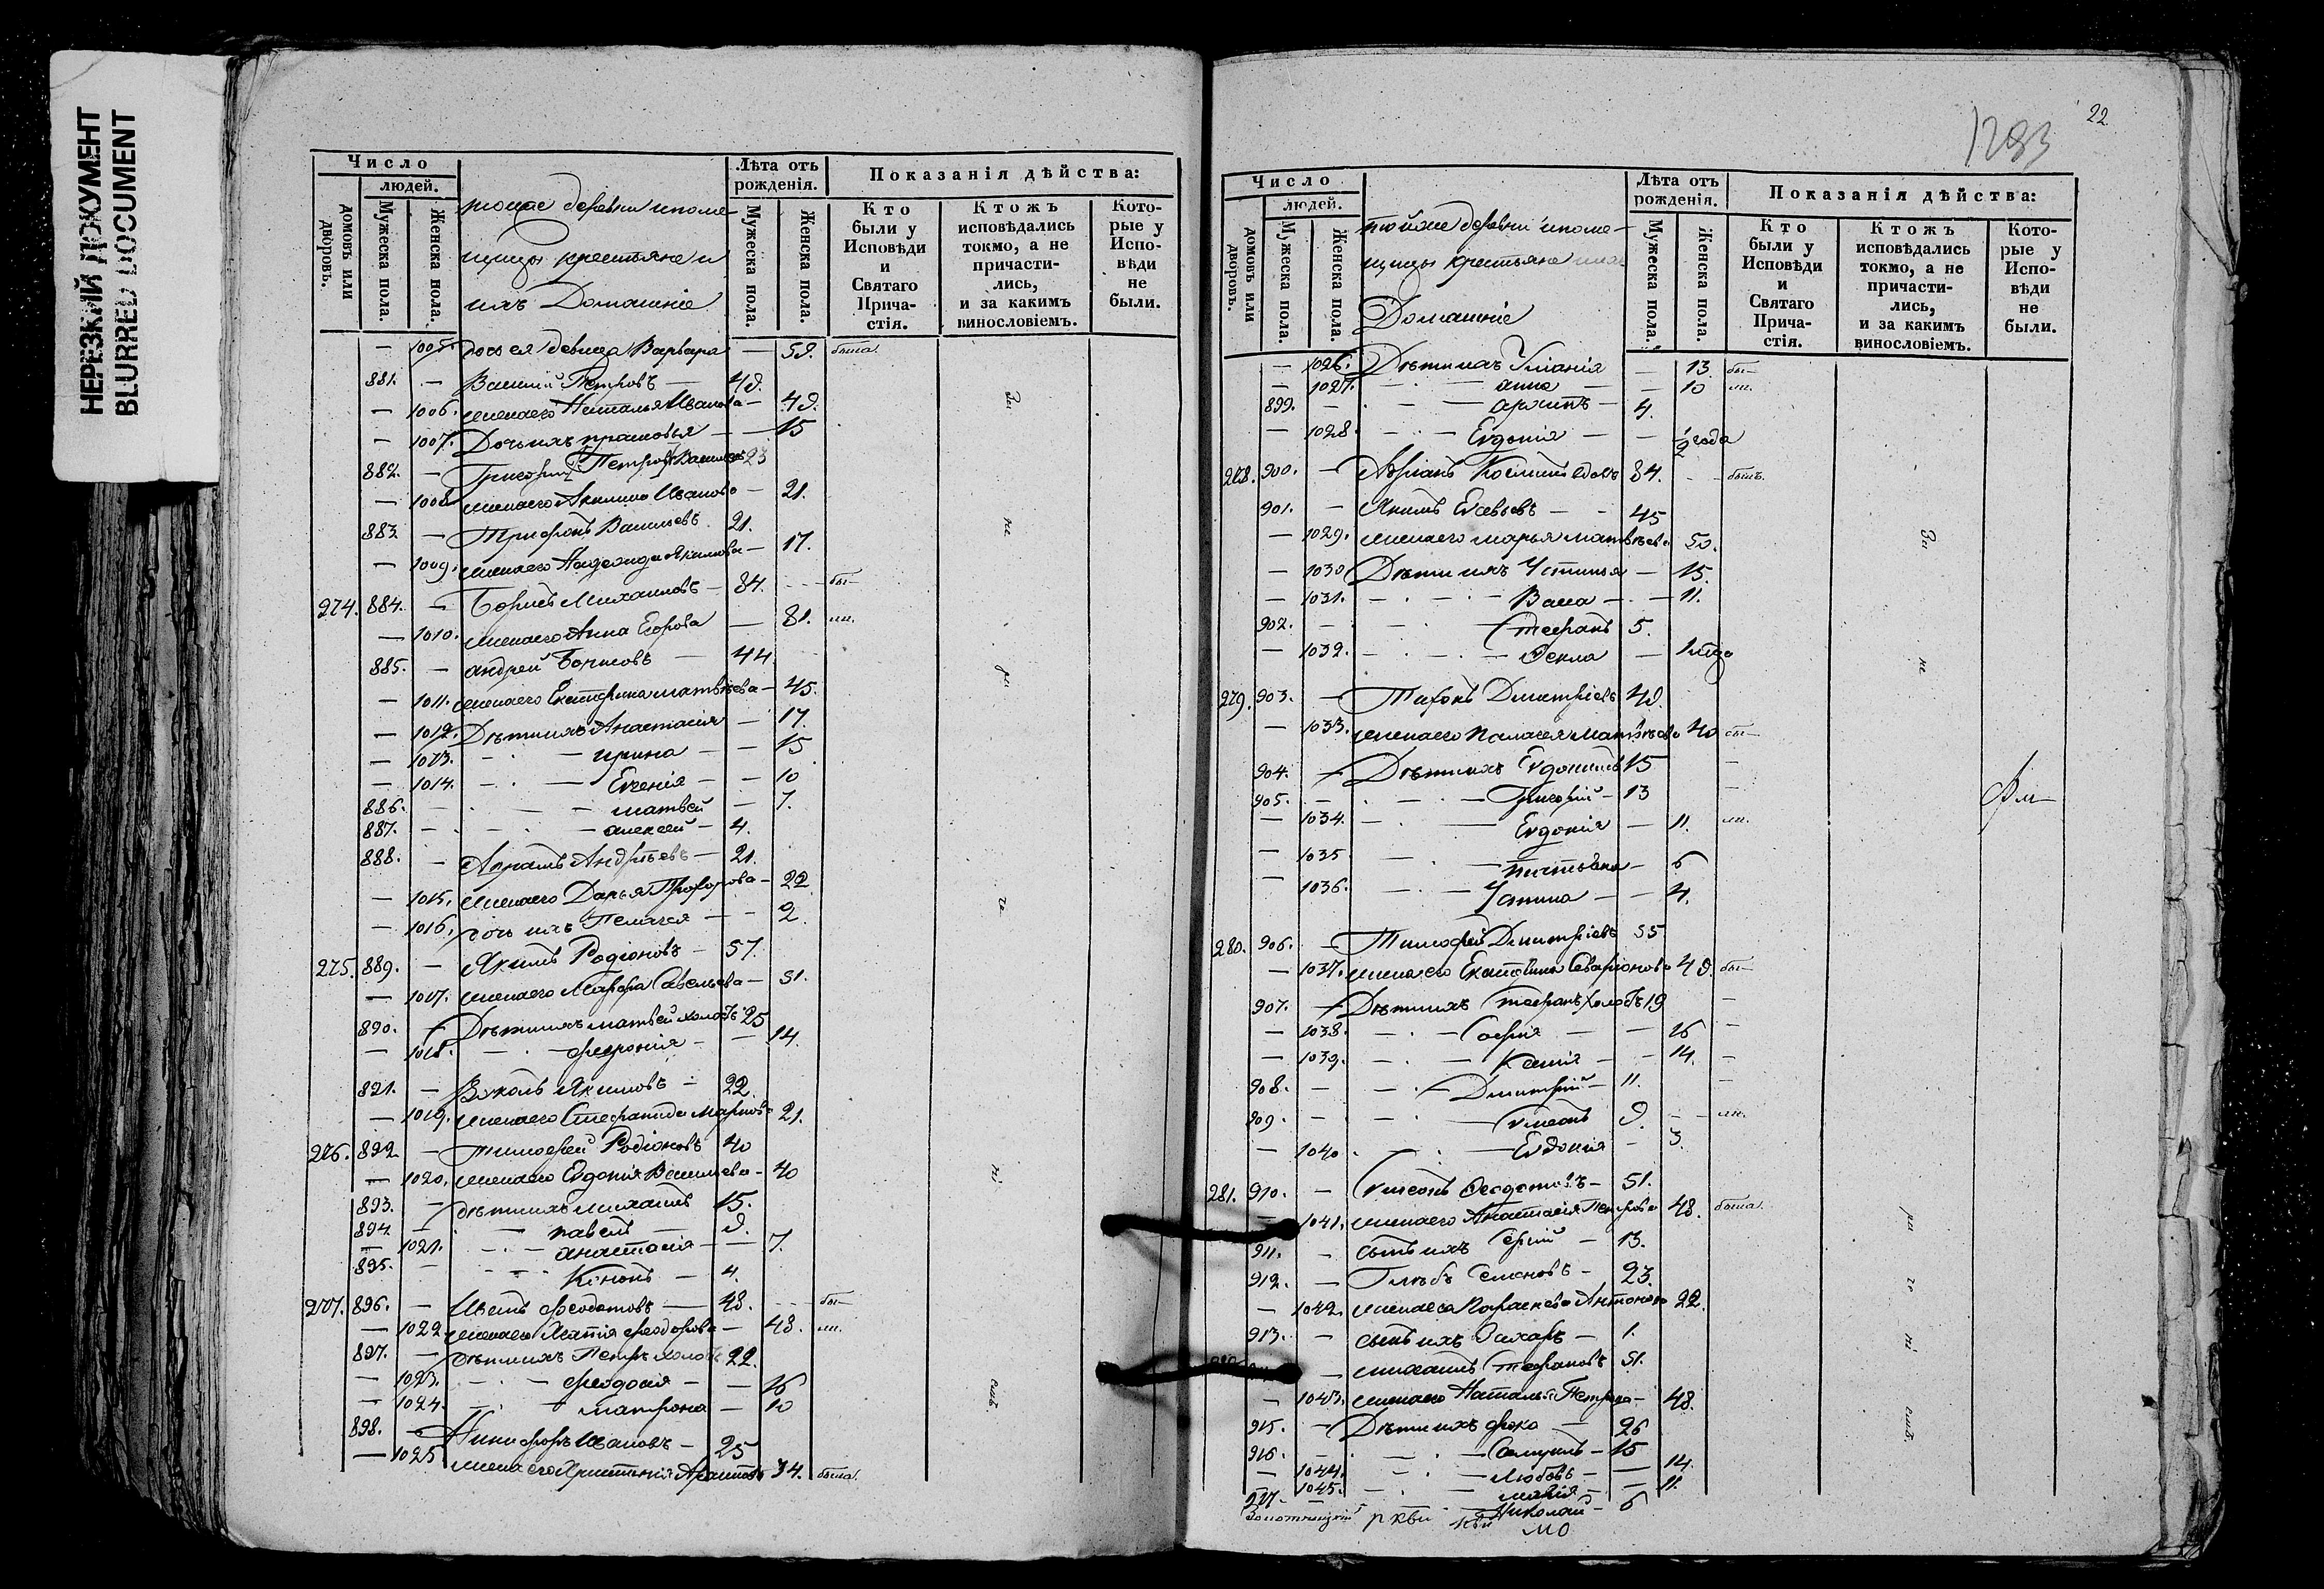 НЕРЕЗКИЙ ДОКУМЕНТ
BLURRED DOCUMENT
Число
людей.
домовъ или дворовъ.
Мужеска пола.
Женска пола.
тоже деревни и поме-
щицы крестьяне и
ихъ Домашніе
Лѣта отъ рожденія.
Мужеска пола.
Женска пола.
Показанія дѣйства:
Кто были у Исповѣди и Святаго Прича-стія.
Ктожъ исповѣдались токмо, а не причасти-лись, и за какимъ винословіемъ.
Кото-рые у Испо-вѣди не были.
— 1005. дочь ея девица Варвара — 59. была.
881. — Василій Петровъ — 49.
— 1006. жена его Наталья Иванова — 49.
— 1007. Дочь ихъ прасковья — 15
882. — Григорій Петровъ Васильевъ 23
— 1008 жена его Акилина Иванова — 21.
883 — Трифонъ Васильевъ 21.
— 1009. жена его Акимова — 17.
274. 884. — Борисъ Михаиловъ — 84. бы—
— 1010. жена его Анна Егорова — 81. ли.
885. — андрей Борисовъ — 44
— 1011. жена его Екатерина матвѣева — 45.
— 1012. Дѣти ихъ Анастасія — 17.
— 1013. — ирина — 15
— 1014. — Евгенія — 10
886. — матвей — 7.
887. — алексей — 4.
888. — Аврамъ Андрѣевъ — 21.
— 1015. жена его Дарья Прохорова — 22
— 1016. дочь ихъ Пелагея — 2
275. 889. — Якимъ Родіоновъ — 57.
— 1017. жена его Марфа Савельева — 51.
890. — Дѣти ихъ матвей холостъ 25
— 1018. — феврония — 14
891. — Вуколъ Якимовъ — 22.
— 1019. жена его Стефанида Маркова 21.
276. 892 — тимофей Родіоновъ 40
— 1020. жена его Евдокія Васильева — 40
893. — дѣти ихъ михаилъ 15.
894. — павелъ — 9.
— 1021. — анастасія — 7.
895. — Кононъ — 4.
277. 896. — Иванъ феодотовъ — 48. бы—
— 1022 жена его феодорова — 48. ли.
897. — дѣти ихъ Петръ холостъ 22.
— 1023. — феодосія — 16
— 1024. — матрона — 10
898. — Никифоръ Ивановъ — 25
— 1025 жена его Христинія 34. была.
За
не
ра
че
ні
емъ
22
1293
Число
людей.
домовъ или дворовъ.
Мужеска пола.
Женска пола.
тойже деревни и поме-
щицы крестьяне ихъ
Домашніе
Лѣта отъ рожденія.
Мужеска пола.
Женска пола.
Показанія дѣйства:
Кто были у Исповѣди и Святаго Прича-стія.
Ктожъ исповѣдались токмо, а не причасти-лись, и за какимъ винословіемъ.
Кото-рые у Испо-вѣди не были.
— 1026. Дѣти ихъ Уліанія — 13 бы—
— 1027. — анна — 10 ли.
899. — архипъ — 4.
— 1028. — Евдокія — ½ года
278. 900. — Адріанъ вдовъ 84. — былъ.
901. — Якимъ — 45
— 1029. жена его марья матвѣева 50.
— 1030 Дѣти ихъ Устинья — 15.
— 1031. — Васса — 11.
902. — Стефанъ 5.
— 1032. — Ѳекла — 1 года
279. 903. — Тихонъ Димитріевъ 49.
— 1033. жена его пелагея матвѣева 40 бы—
904. — Дѣти ихъ Евдокимъ 15 —
905. — Григорій — 13 —
— 1034. — Евдокія — 11. ли.
— 1035 — татьяна — 6
— 1036. — Устина — 4.
280. 906. — Тимофей Димитріевъ 55
— 1037. жена его Екатерина 49 бы—
907. — Дѣти ихъ Стефанъ холостъ 19 —
— 1038. — Софія — 16 —
— 1039. — Ксенія — 14. —
908. — Димитрій — 11. —
909. — Симеонъ 9. — ли.
— 1040 — Евдокия — 3.
281. 910. — Симеонъ Ѳеодотовъ — 51.
— 1041. жена его Анастасія Петрова 48. была.
911. — сынъ ихъ Сергій — 13.
912. — Глѣбъ Семеновъ — 23.
— 1042. жена его Параскева Антонова 22.
913. — сынъ ихъ Захаръ — 1.
— михаилъ Стефановъ 51.
— 1043. жена его Наталья Петрова — 48.
915. — Дѣти ихъ фока — 26
916. — Самуилъ — 15
— 1044. — Любовь — 14.
— 1045. — марія — 11.
917. — Николай — 6
За
не
ра
че
ні
емъ